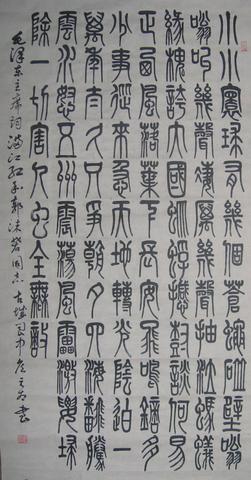 小小寰球有幾個蒼蠅碰壁
嗡嗡叫幾聲淒厲幾聲抽泣螞蟻
緣槐誇大國蚍蜉撼樹談何易
正西風落葉下長安飛鳴鏑多
少事從來急天地轉光陰迫一
萬年太久只爭朝夕四海翻騰
雲水怒五洲震蕩風雷激要掃
除一切害人虫全無敵
毛澤東主席詞滿江紅和郭沫若同志 古城 書